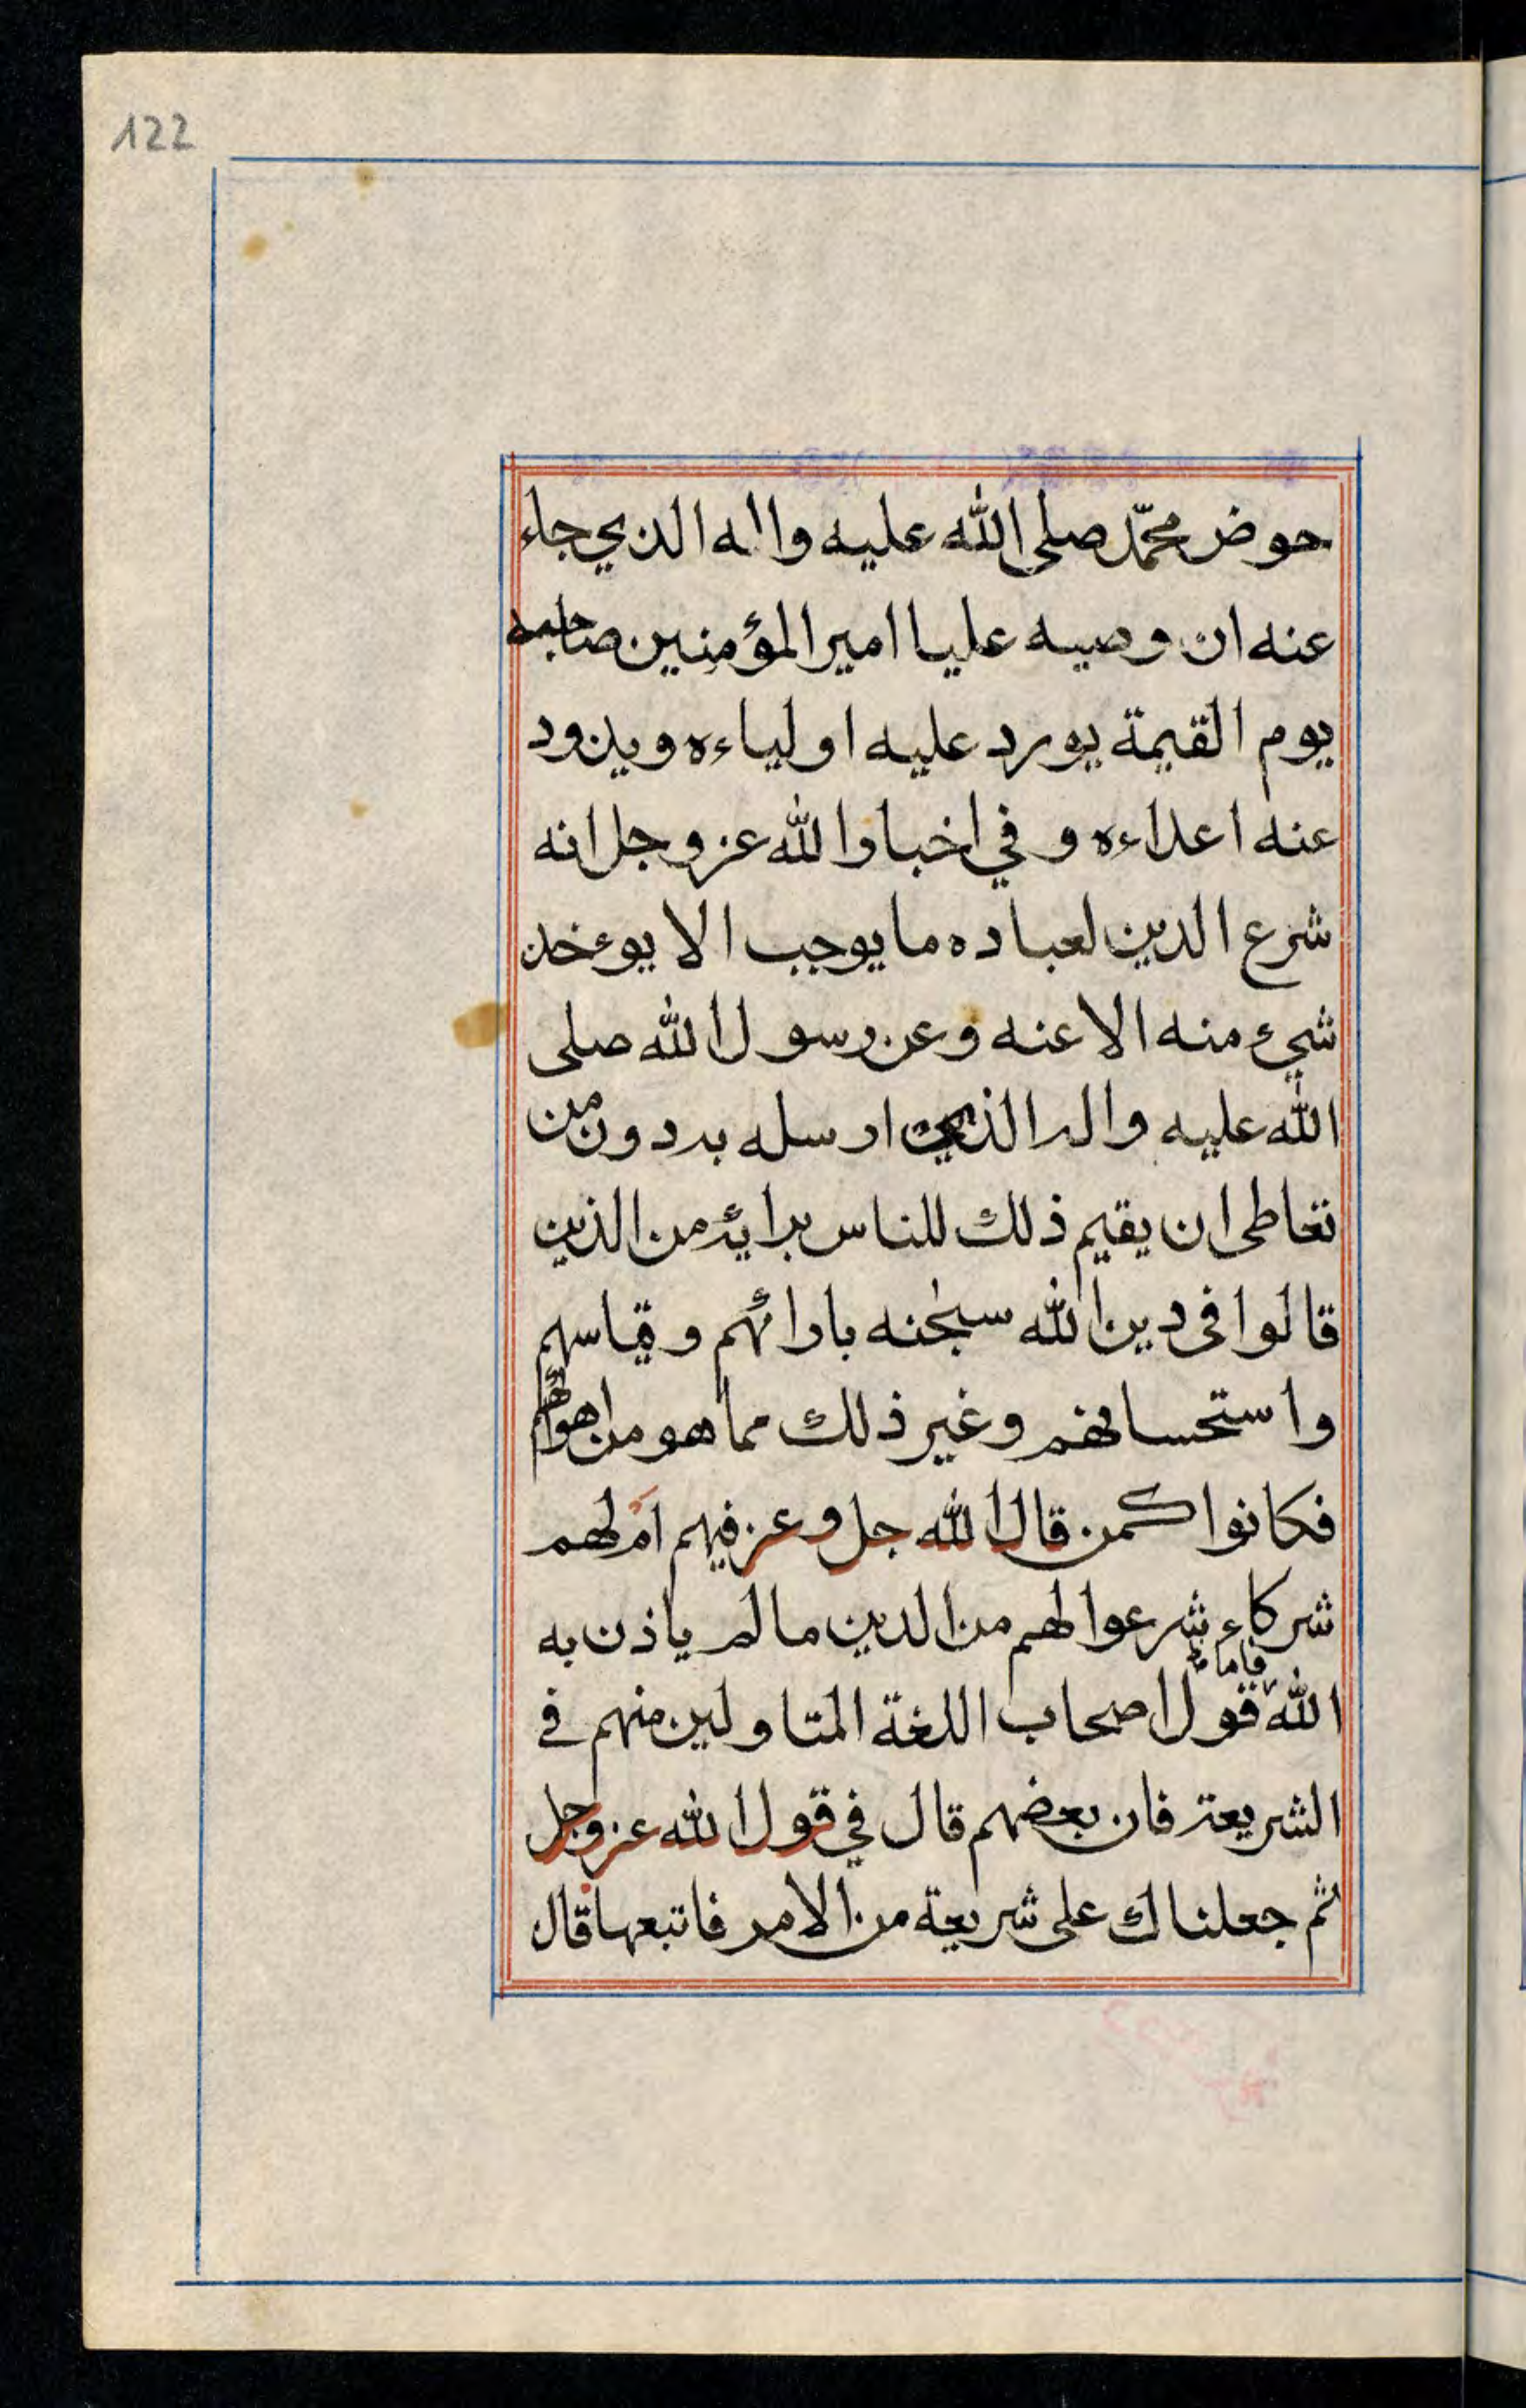 122
حوض محمّد صلى الله عليه واله الذي جاء
عنه ان وصيه عليا امير المؤمنين صاحبه
يوم القيمة يورد عليه اولياءه ويذود
عنه اعداءه وفي اخبار الله عز وجل انه
شرع الدين لعباده ما يوجب الا يوءخذ
شيء منه الا عنه وعن رسول الله صلى
الله عليه واله الذي ارسله به دون من
تعاطى ان يقيم ذلك للناس برايه من الذين
قالوا فى دين الله سبحنه بارائهم وقياسهم
واستحسانهم وغير ذلك مما هو من اهوائهم
فكانوا كمن قال الله جل وعز فيهم ام لهم
شركاء شرعوا لهم من الدين ما لم ياذن به
الله فاما قول اصحاب اللغة المتاولين منهم في
الشريعة فان بعضهم قال في قول الله عز وجل
ثم جعلناك على شريعة من الامر فاتبعها قال